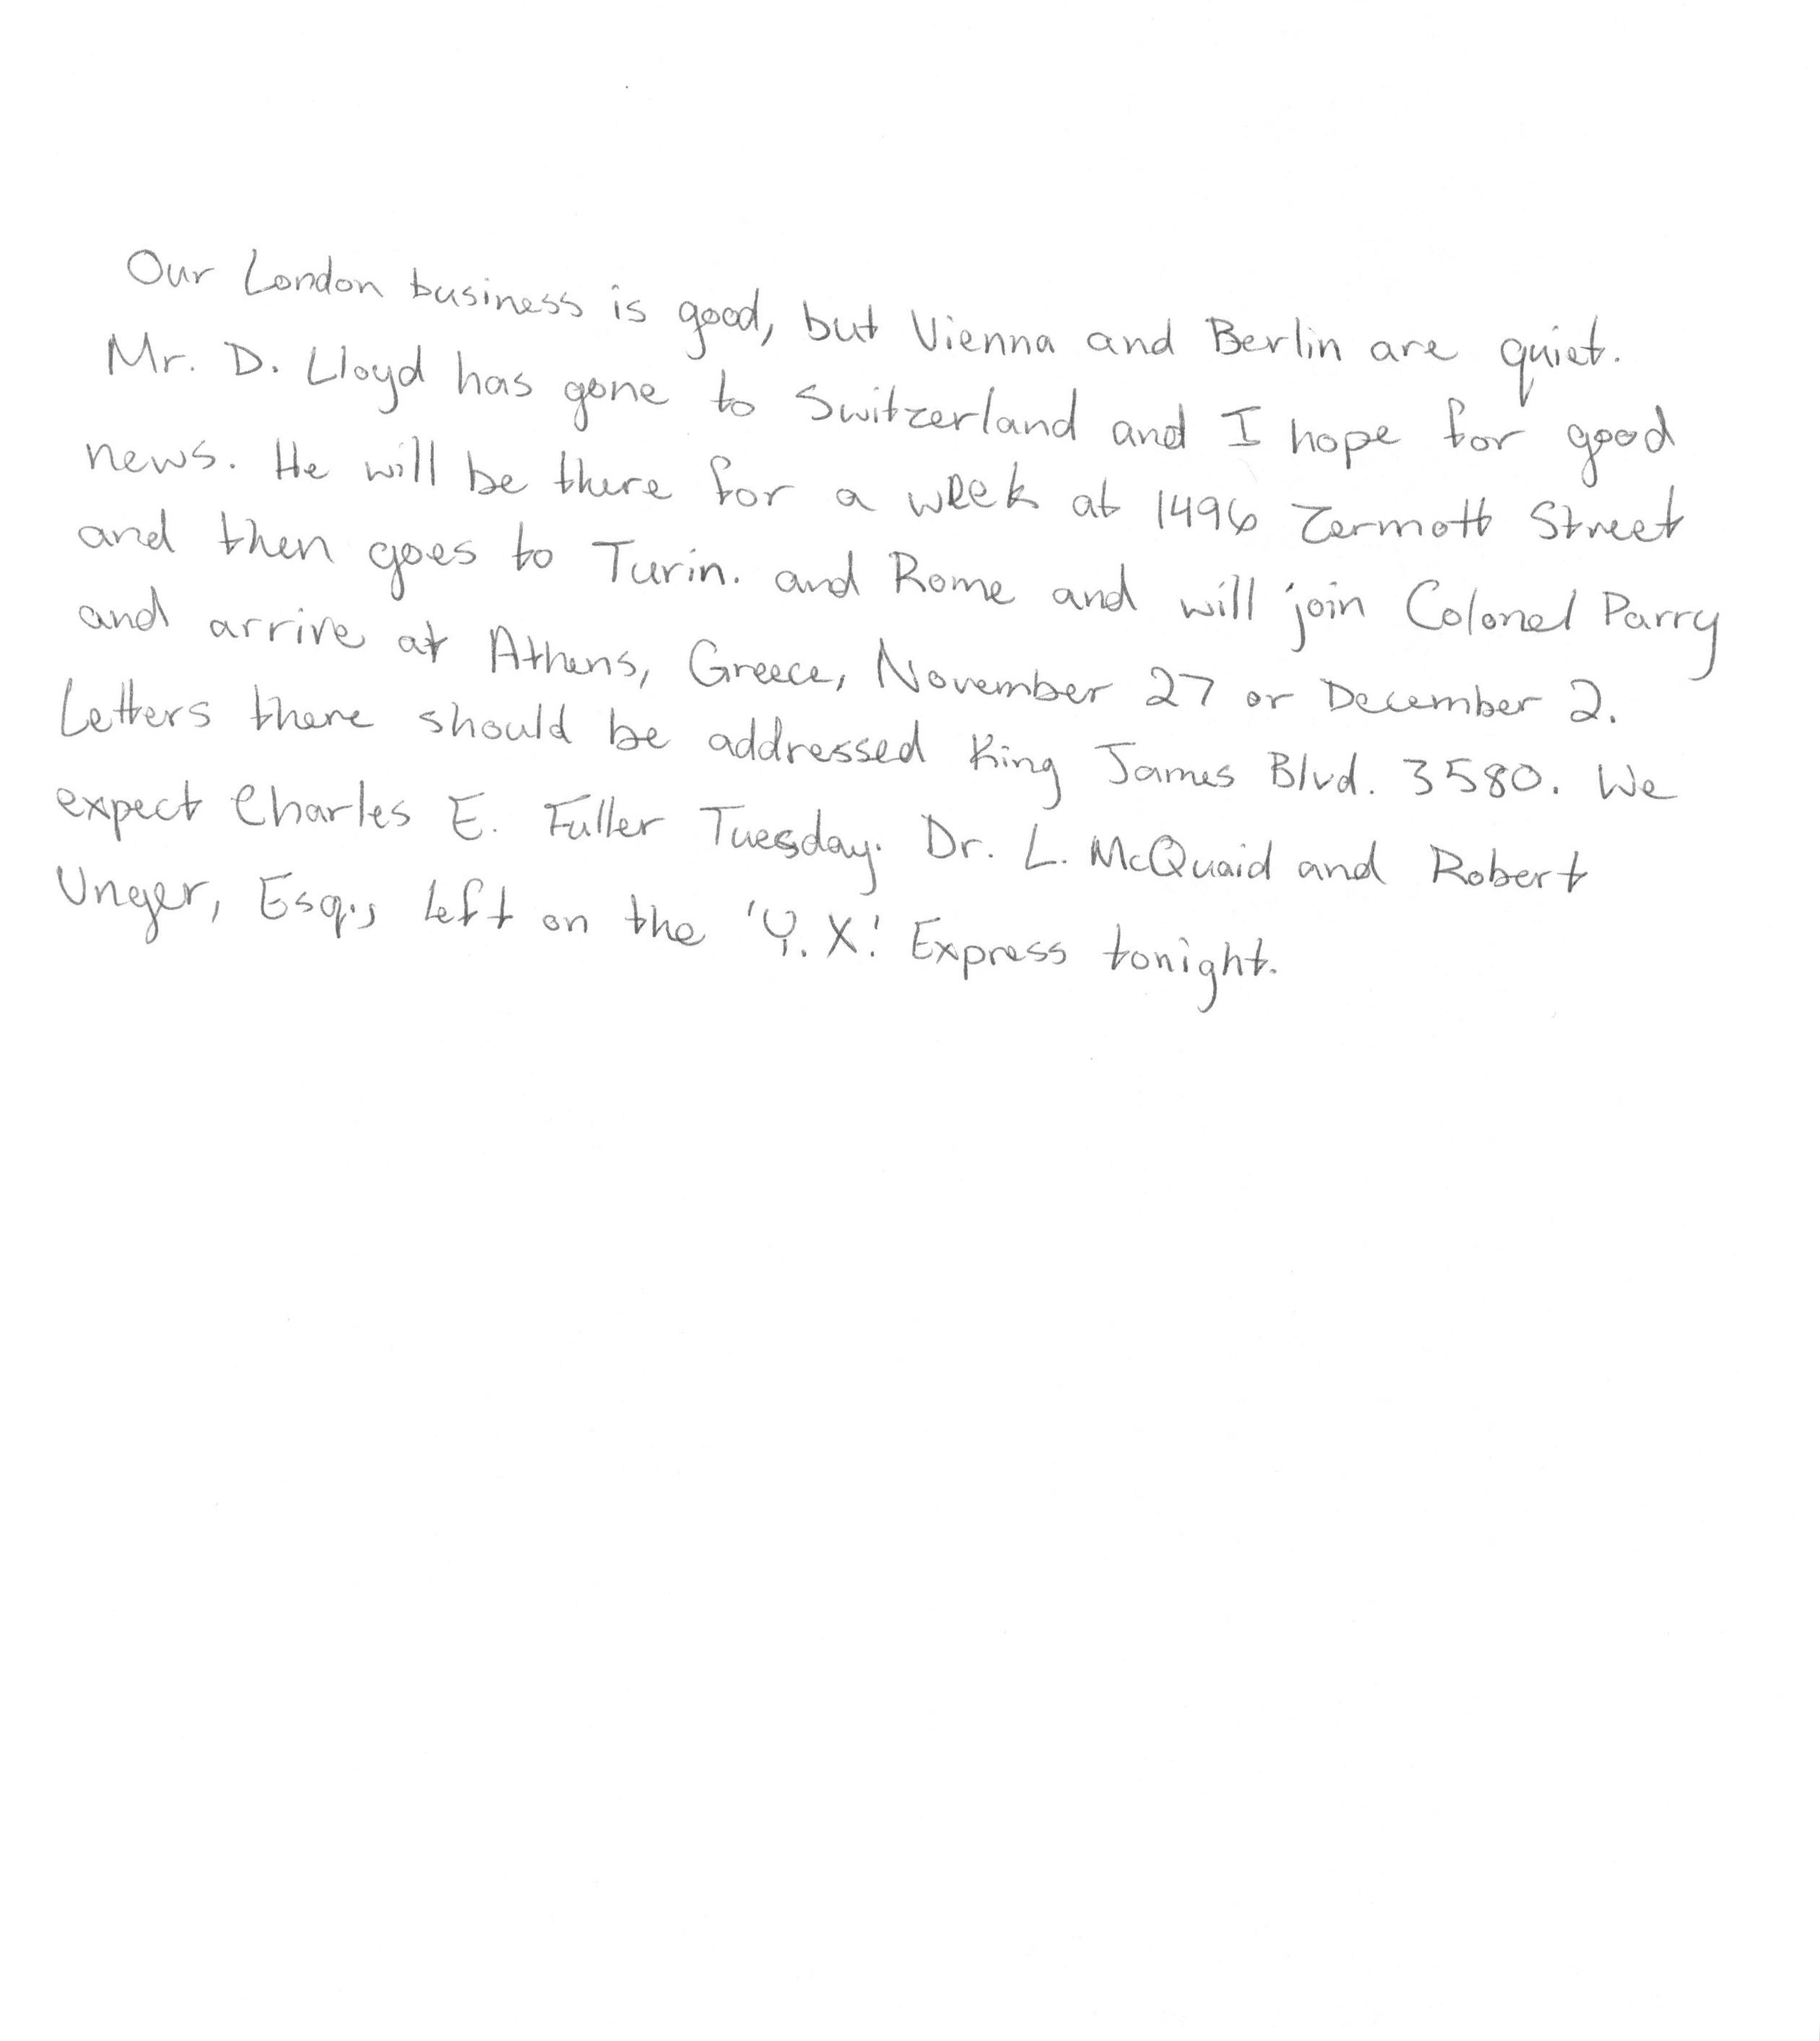 Our London business is good, but Vienna and Berlin are quiet.
Mr. D. Lloyd has gone to Switzerland and I hope for good
news. He will be there for a week at 1496 Zermott Street
and then goes to Turin. and Rome and will join Colonel Parry
and arrive at Athens, Greece, November 27 or December 2.
Letters there should be addressed King James Blvd. 3580. We
expect Charles E. Fuller Tuesday. Dr. L. McQuaid and Robert
Unger, Esq., left on the 'Y. X.' Express tonight.